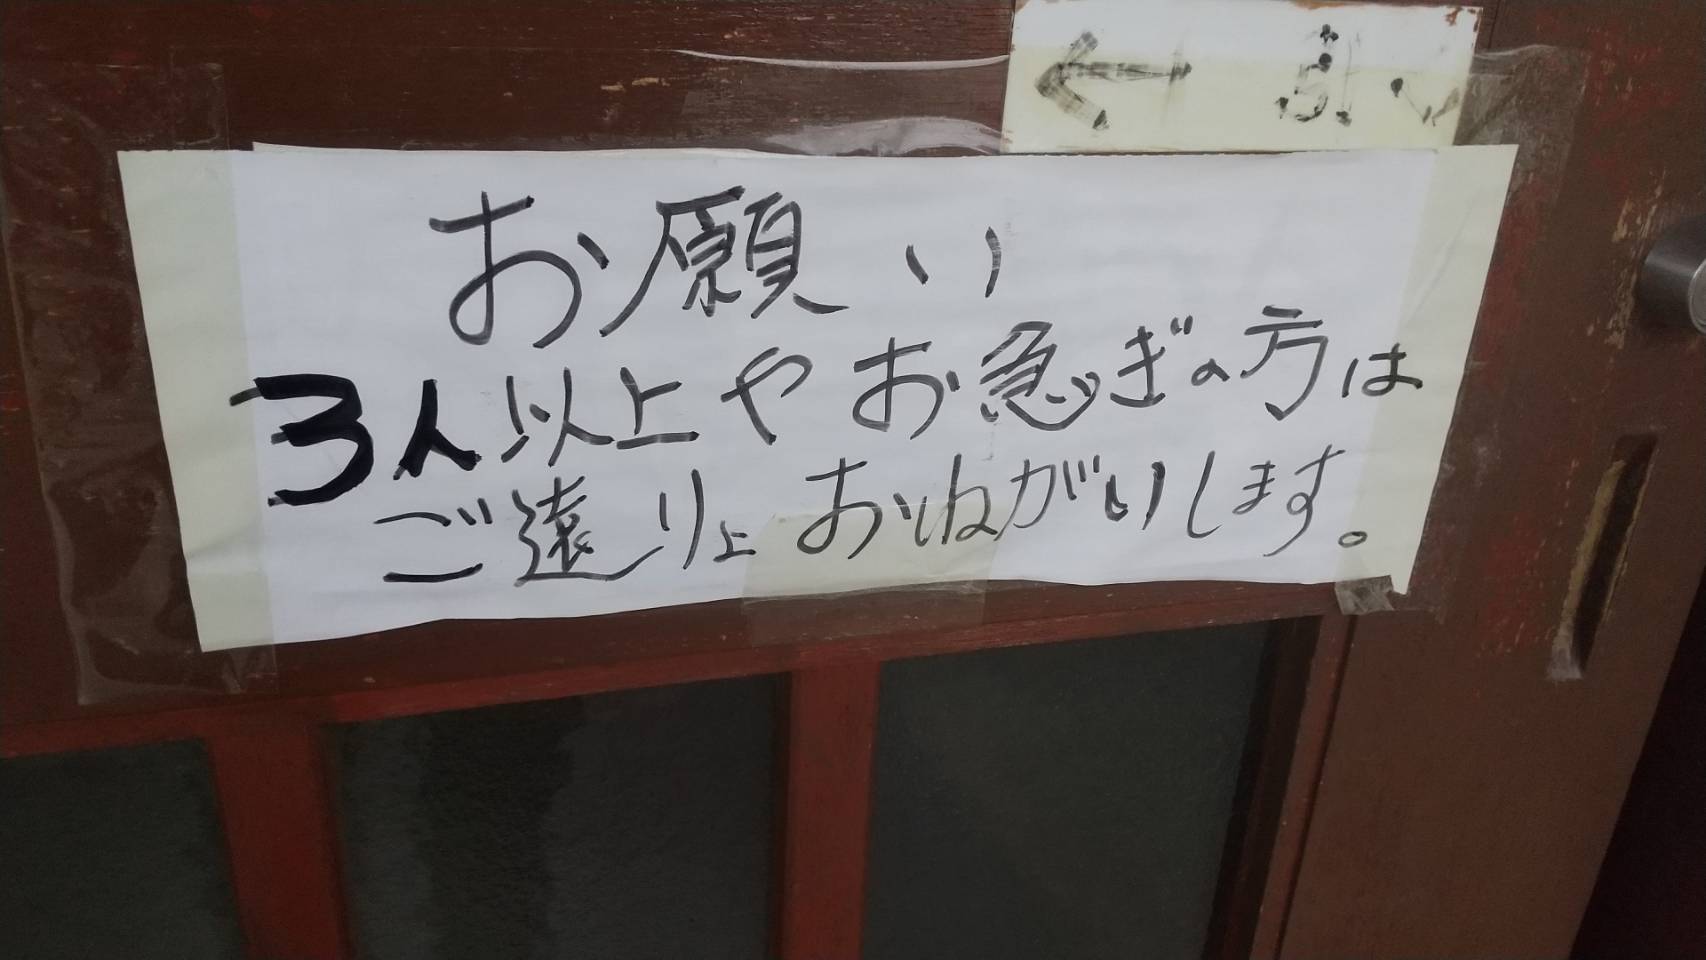 ← 引
お願い
3人以上やお急ぎの方は
ご遠りょおねがいします。